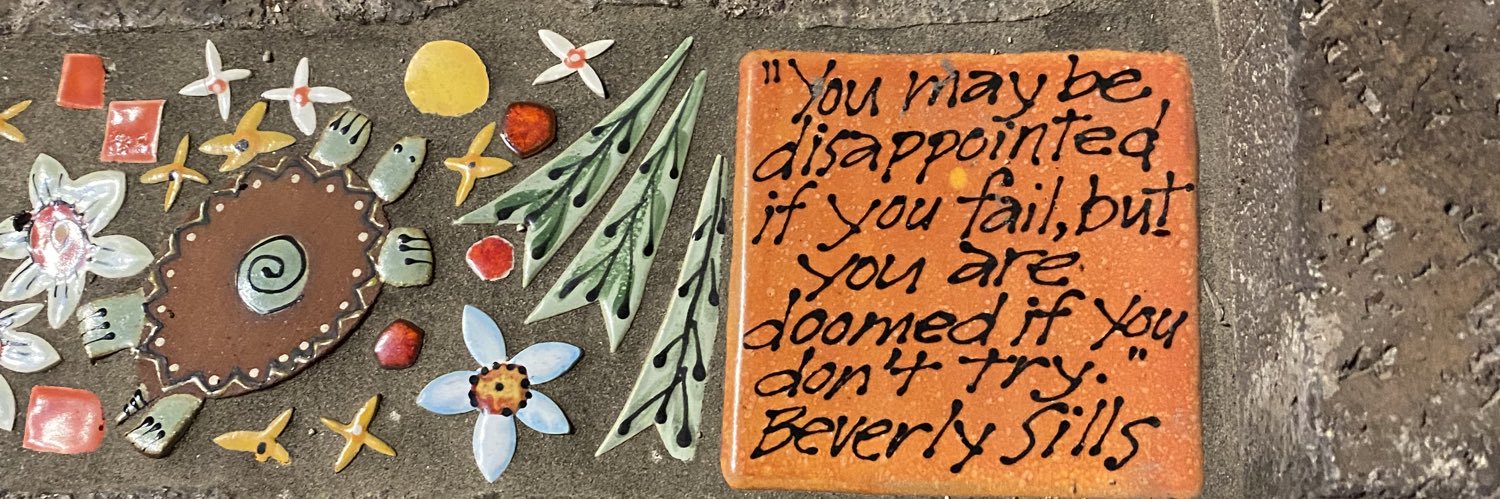 "You may be
disappointed
if you fail, but
you are
doomed if you
don't try."
Beverly Sills